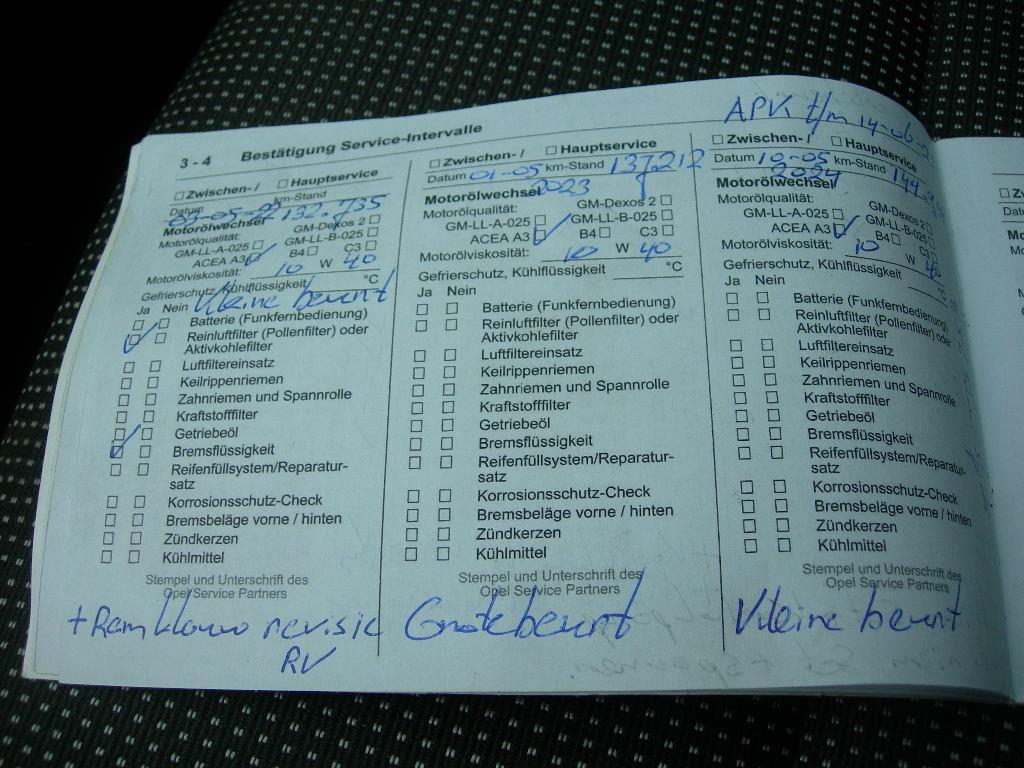 APK t/m 14-06-2
3 - 4 Bestätigung Service-Intervalle
Zwischen- / Hauptservice
Datum km-Stand
132.735
Motorölwechsel
Motorölqualität: GM-Dexos 2
GM-LL-A-025 GM-LL-B-025
ACEA A3 B4 C3
Motorölviskosität: 10 W 40
Gefrierschutz, Kühlflüssigkeit °C
Kleine beurt
Ja Nein
Batterie (Funkfernbedienung)
Reinluftfilter (Pollenfilter) oder
Aktivkohlefilter
Luftfiltereinsatz
Keilrippenriemen
Zahnriemen und Spannrolle
Kraftstofffilter
Getriebeöl
Bremsflüssigkeit
Reifenfüllsystem/Reparatur-
satz
Korrosionsschutz-Check
Bremsbeläge vorne / hinten
Zündkerzen
Kühlmittel
Stempel und Unterschrift des
Opel Service Partners
+ Remklauw revisie
RV
Zwischen- / Hauptservice
Datum 01-05 km-Stand 137.212
2023
Motorölwechsel
Motorölqualität: GM-Dexos 2
GM-LL-A-025 GM-LL-B-025
ACEA A3 B4 C3
Motorölviskosität: 10 W 40
Gefrierschutz, Kühlflüssigkeit °C
Ja Nein
Batterie (Funkfernbedienung)
Reinluftfilter (Pollenfilter) oder
Aktivkohlefilter
Luftfiltereinsatz
Keilrippenriemen
Zahnriemen und Spannrolle
Kraftstofffilter
Getriebeöl
Bremsflüssigkeit
Reifenfüllsystem/Reparatur-
satz
Korrosionsschutz-Check
Bremsbeläge vorne / hinten
Zündkerzen
Kühlmittel
Stempel und Unterschrift des
Opel Service Partners
Grote beurt
Zwischen- / Hauptservice
Datum 10-05 km-Stand
2024
Motorölwechsel
Motorölqualität: GM-Dexos 2
GM-LL-A-025 GM-LL-B-025
ACEA A3 B4 C3
Motorölviskosität: 10 W 40
Gefrierschutz, Kühlflüssigkeit °C
Ja Nein
Batterie (Funkfernbedienung)
Reinluftfilter (Pollenfilter) oder
Aktivkohlefilter
Luftfiltereinsatz
Keilrippenriemen
Zahnriemen und Spannrolle
Kraftstofffilter
Getriebeöl
Bremsflüssigkeit
Reifenfüllsystem/Reparatur-
satz
Korrosionsschutz-Check
Bremsbeläge vorne / hinten
Zündkerzen
Kühlmittel
Stempel und Unterschrift des
Opel Service Partners
Kleine beurt